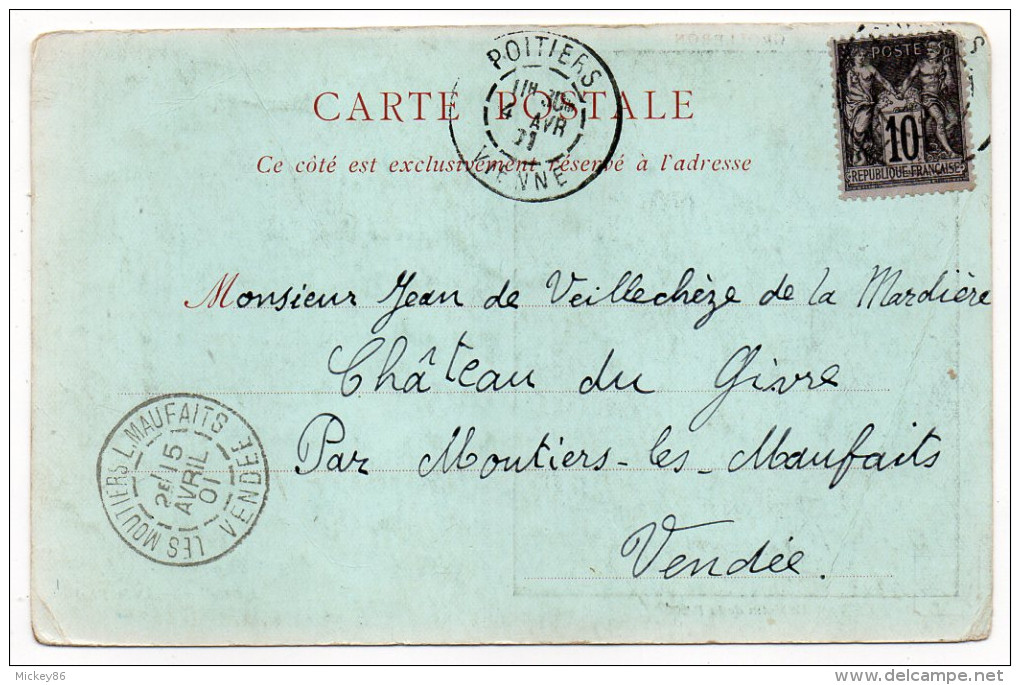 POITIERS
4 AVR
VIENNE
POSTES
10
REPUBLIQUE FRANÇAISE
CARTE POSTALE
Ce côté est exclusivement réservé à l'adresse
Monsieur Jean de Veillechèze de la Mardière
Château du Givre
Par Moutiers-les-Maufaits
Vendée.
LES MOUTIERS L. MAUFAITS
15
AVRIL
01
VENDÉE
Mickey86
www.delcampe.net